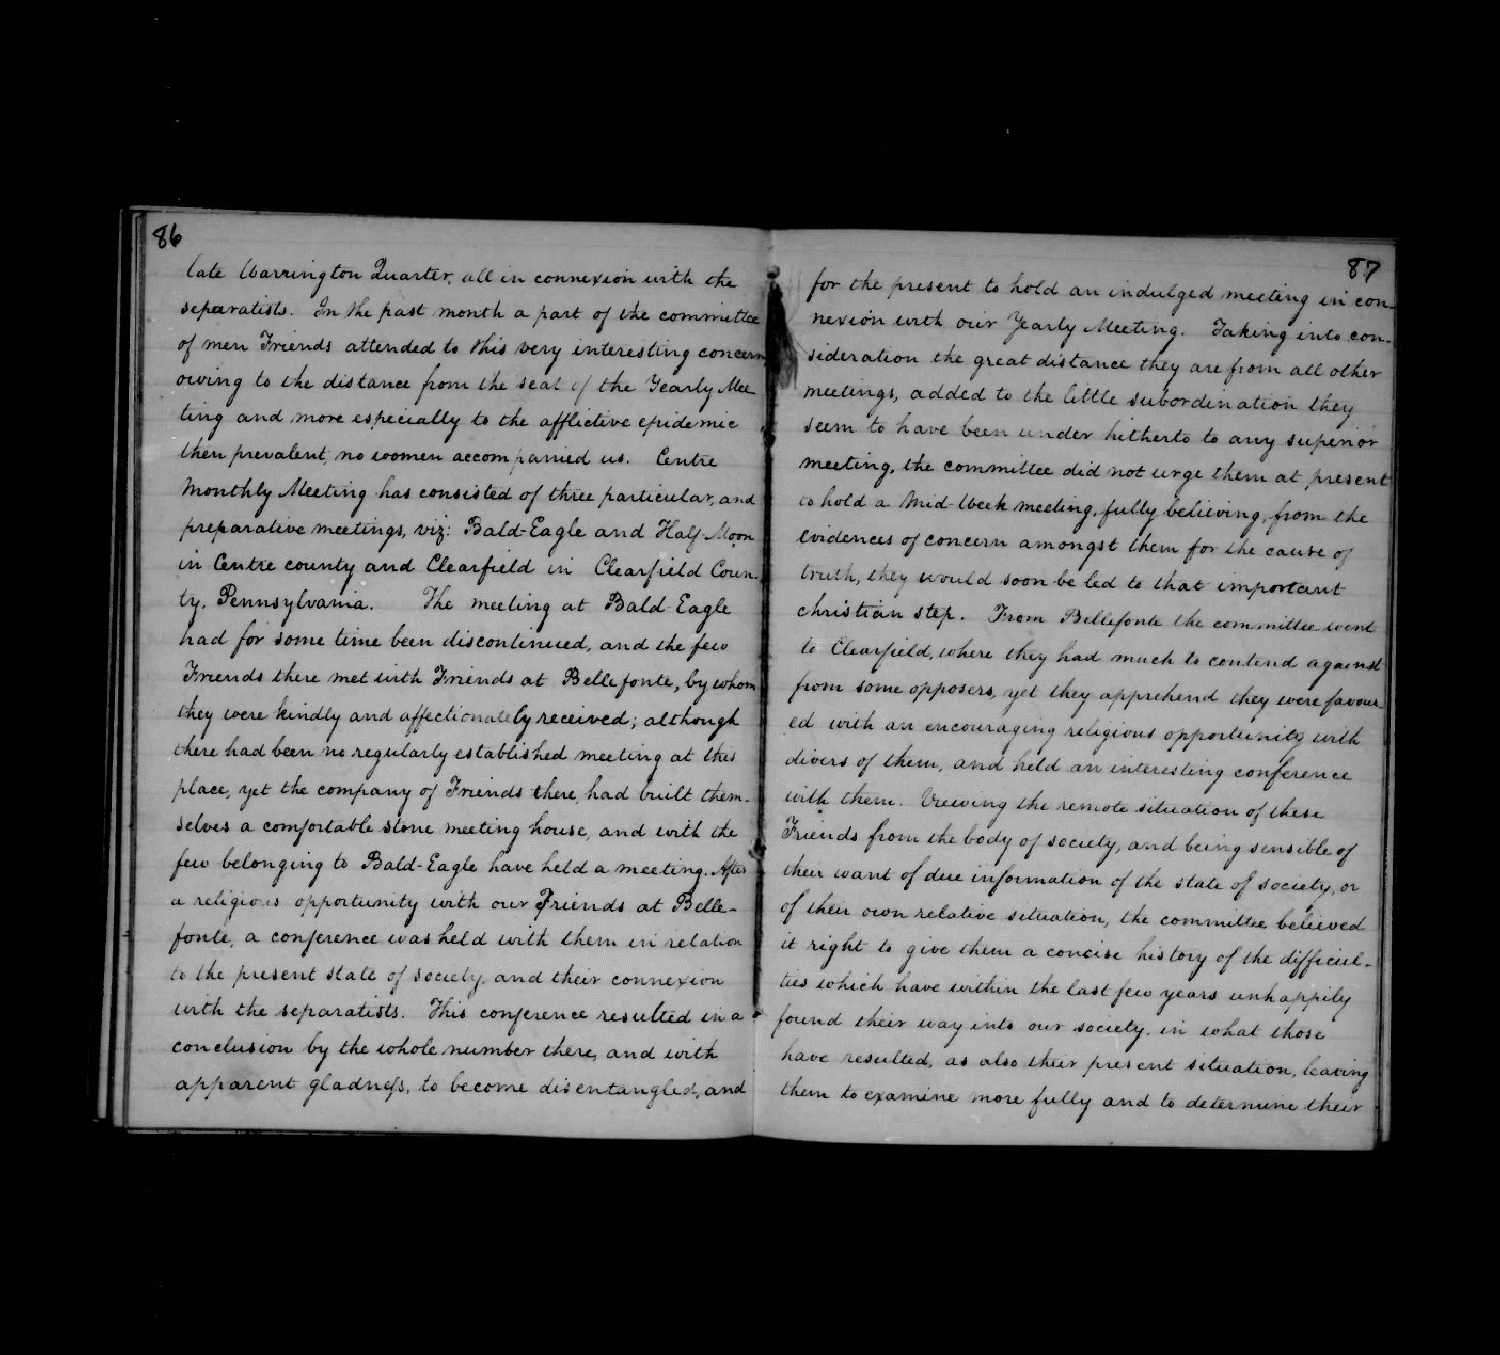 86
late Warrington Quarter, all in connexion with the
separatists. In the past month a part of the committee
of men Friends attended to this very interesting concern
owing to the distance from the seat of the Yearly Mee
ting and more especially to the afflictive epidemic
then prevalent, no women accompanied us. Centre
Monthly Meeting has consisted of three particular, and
preparative meetings, viz: Bald-Eagle and Half-Moon
in Centre county and Clearfield in Clearfield Coun-
ty, Pennsylvania. The meeting at Bald Eagle
had for some time been discontinued, and the few
Friends there met with Friends at Bellefonte, by whom
they were kindly and affectionately received; although
there had been no regularly established meeting at this
place, yet the company of Friends there, had built them-
selves a comfortable stone meeting house, and with the
few belonging to Bald-Eagle have held a meeting. After
a religious opportunity with our Friends at Belle-
fonte, a conference was held with them in relation
to the present state of society, and their connexion
with the separatists. This conference resulted in a
conclusion by the whole number there, and with
apparent gladness, to become disentangled, and
87
for the present to hold an indulged meeting in con-
nexion with our Yearly Meeting. Taking into con-
sideration the great distance they are from all other
meetings, added to the little subordination they
seem to have been under hitherto to any superior
meeting, the committee did not urge them at present
to hold a Mid-Week meeting, fully believing, from the
evidences of concern amongst them for the cause of
truth, they would soon be led to that important
christian step. From Bellefonte the committee went
to Clearfield, where they had much to contend against
from some opposers, yet they apprehend they were favour
ed with an encouraging religious opportunity with
divers of them, and held an interesting conference
with them. Viewing the remote situation of these
Friends from the body of society, and being sensible of
their want of due information of the state of society, or
of their own relative situation, the committee believed
it right to give them a concise history of the difficul-
ties which have within the last few years unhappily
found their way into our society, in what those
have resulted, as also their present situation, leaving
them to examine more fully and to determine their